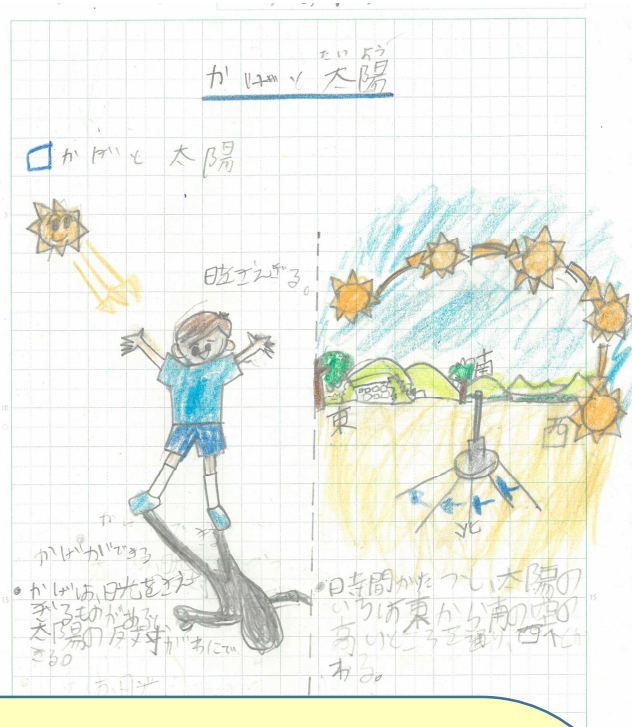 たいよう
かげと太陽
かげと太陽
さえぎる。
東
南
西
北
かげができる
・かげは、日光をさえ
ぎるものがあると
太陽の反対がわにで
きる。
・時間がたつと太陽の
いちは東から南の空の
高いところを通り、西へとか
わる。